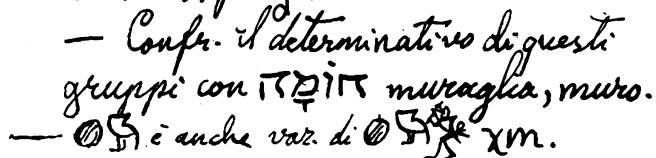 — Confr. il determinativo di questi
gruppi con חוֹמָה muraglia, muro.
— è anche var. di χm.